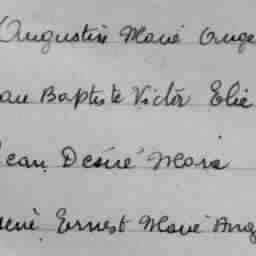 Augustin Marie Ange
Baptiste Victor Elie
Jean Désiré Marie
Ernest Marie Ang